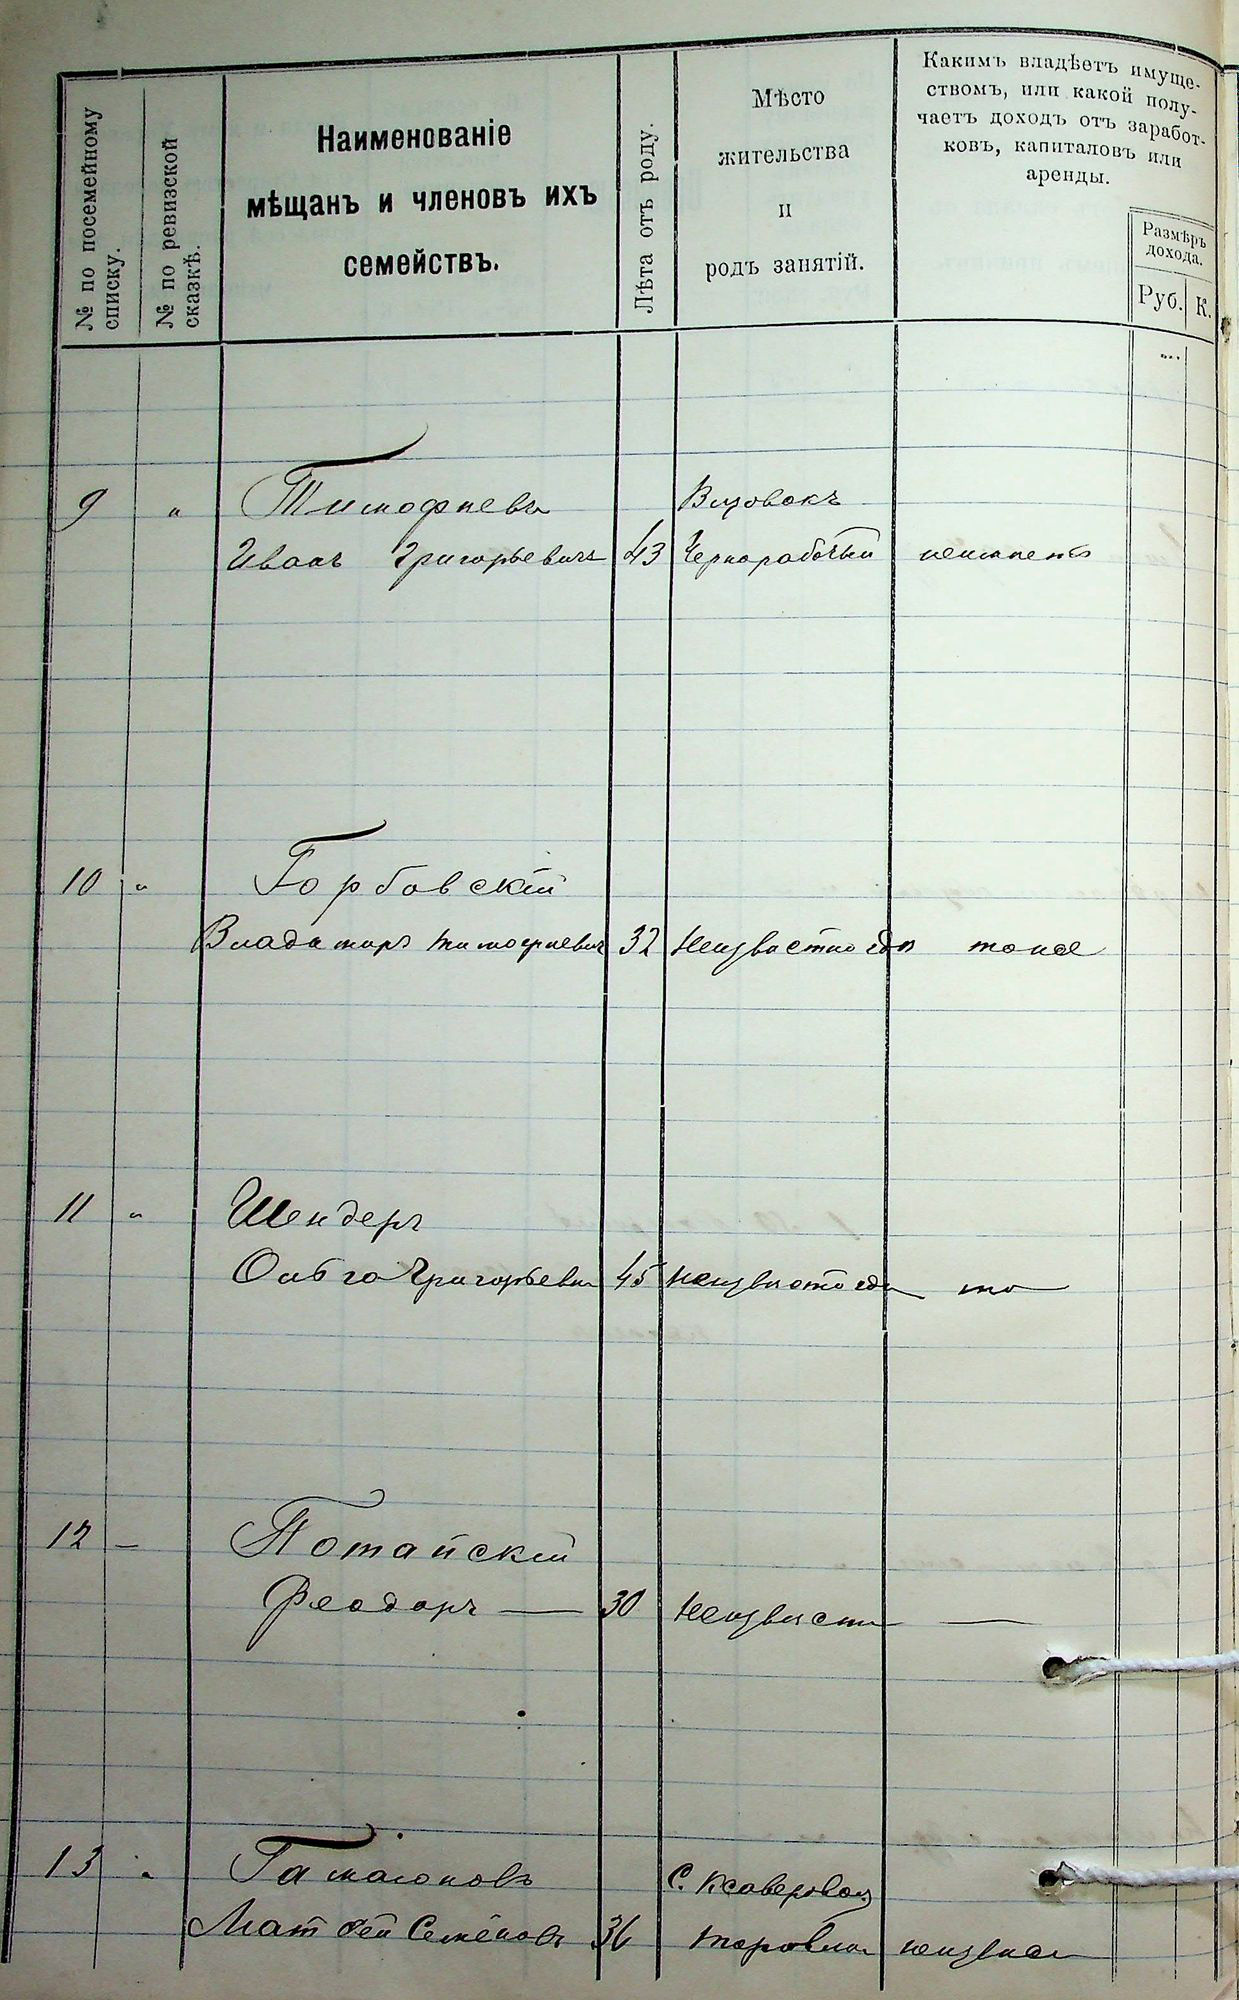 № по посемейному
списку.
№ по ревизской
сказкѣ.
Наименованіе
мѣщанъ и членовъ ихъ
семействъ.
Лѣта отъ роду.
Мѣсто
жительства
и
родъ занятій.
Какимъ владѣетъ имуще-
ствомъ, или какой полу-
чаетъ доходъ отъ заработ-
ковъ, капиталовъ или
аренды.
Размѣръ
дохода.
Руб. К.
9 " Тимофѣевъ
Иванъ Григорьевичъ 43 Чернорабочій неимѣетъ
10 " Горбовскій
Владимиръ Тимофѣевич 32 Неизвѣстно гдѣ тоже
11 " Шендеръ
Ольга Григорьевна 45 неизвѣстно гдѣ то
12 — Потайскій
Феодоръ — 30 Неизвѣстн —
13 "
Матвѣй Семёновъ 36 торговля неизвѣс